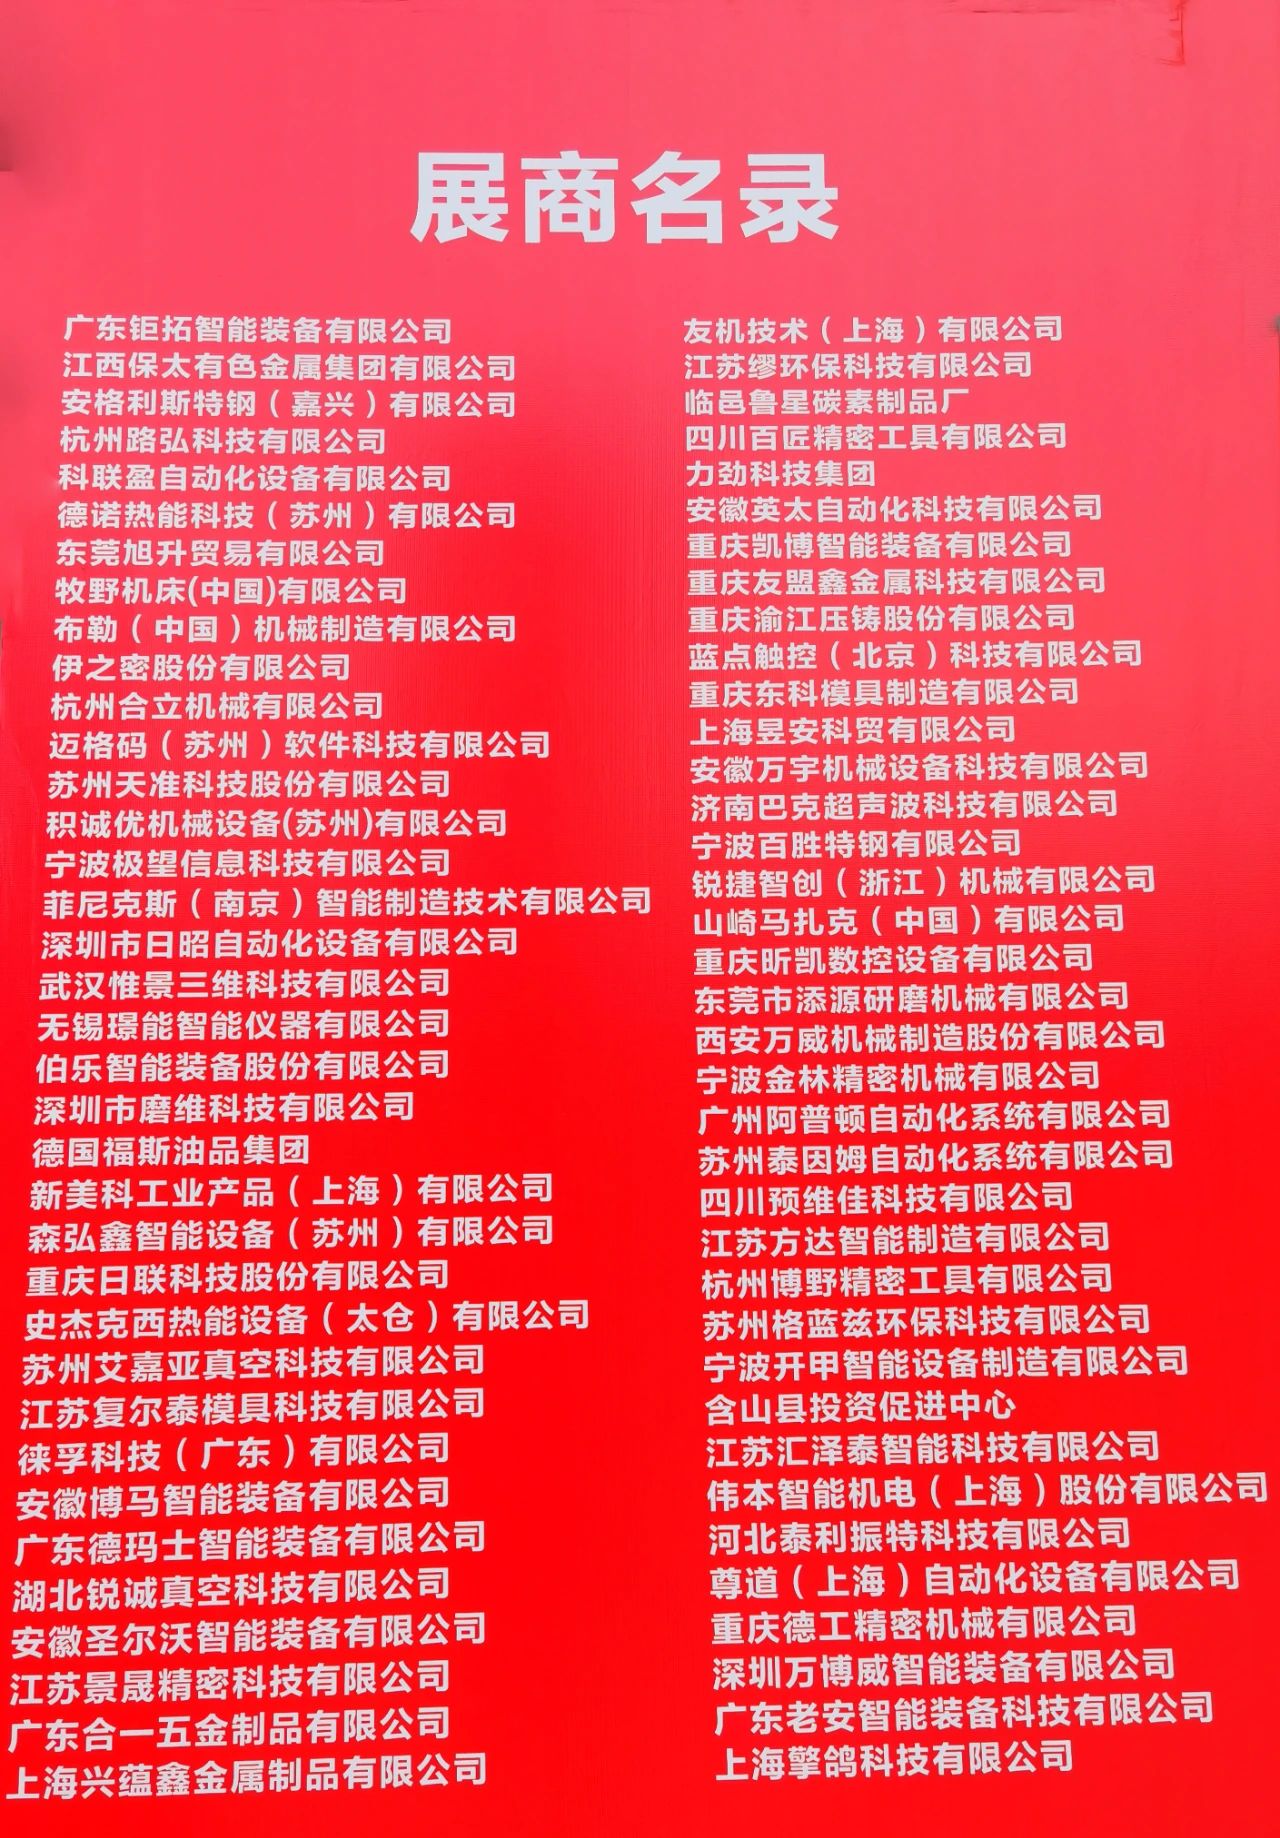 展商名录
广东钜拓智能装备有限公司
江西保太有色金属集团有限公司
安格利斯特钢（嘉兴）有限公司
杭州路弘科技有限公司
科联盈自动化设备有限公司
德诺热能科技（苏州）有限公司
东莞旭升贸易有限公司
牧野机床(中国)有限公司
布勒（中国）机械制造有限公司
伊之密股份有限公司
杭州合立机械有限公司
迈格码（苏州）软件科技有限公司
苏州天准科技股份有限公司
积诚优机械设备(苏州)有限公司
宁波极望信息科技有限公司
菲尼克斯（南京）智能制造技术有限公司
深圳市日昭自动化设备有限公司
武汉惟景三维科技有限公司
无锡璟能智能仪器有限公司
伯乐智能装备股份有限公司
深圳市磨维科技有限公司
德国福斯油品集团
新美科工业产品（上海）有限公司
森弘鑫智能设备（苏州）有限公司
重庆日联科技股份有限公司
史杰克西热能设备（太仓）有限公司
苏州艾嘉亚真空科技有限公司
江苏复尔泰模具科技有限公司
徕孚科技（广东）有限公司
安徽博马智能装备有限公司
广东德玛士智能装备有限公司
湖北锐诚真空科技有限公司
安徽圣尔沃智能装备有限公司
江苏景晟精密科技有限公司
广东合一五金制品有限公司
上海兴蕴鑫金属制品有限公司
友机技术（上海）有限公司
江苏缪环保科技有限公司
临邑鲁星碳素制品厂
四川百匠精密工具有限公司
力劲科技集团
安徽英太自动化科技有限公司
重庆凯博智能装备有限公司
重庆友盟鑫金属科技有限公司
重庆渝江压铸股份有限公司
蓝点触控（北京）科技有限公司
重庆东科模具制造有限公司
上海昱安科贸有限公司
安徽万宇机械设备科技有限公司
济南巴克超声波科技有限公司
宁波百胜特钢有限公司
锐捷智创（浙江）机械有限公司
山崎马扎克（中国）有限公司
重庆昕凯数控设备有限公司
东莞市添源研磨机械有限公司
西安万威机械制造股份有限公司
宁波金林精密机械有限公司
广州阿普顿自动化系统有限公司
苏州泰因姆自动化系统有限公司
四川预维佳科技有限公司
江苏方达智能制造有限公司
杭州博野精密工具有限公司
苏州格蓝兹环保科技有限公司
宁波开甲智能设备制造有限公司
含山县投资促进中心
江苏汇泽泰智能科技有限公司
伟本智能机电（上海）股份有限公司
河北泰利振特科技有限公司
尊道（上海）自动化设备有限公司
重庆德工精密机械有限公司
深圳万博威智能装备有限公司
广东老安智能装备科技有限公司
上海擎鸽科技有限公司